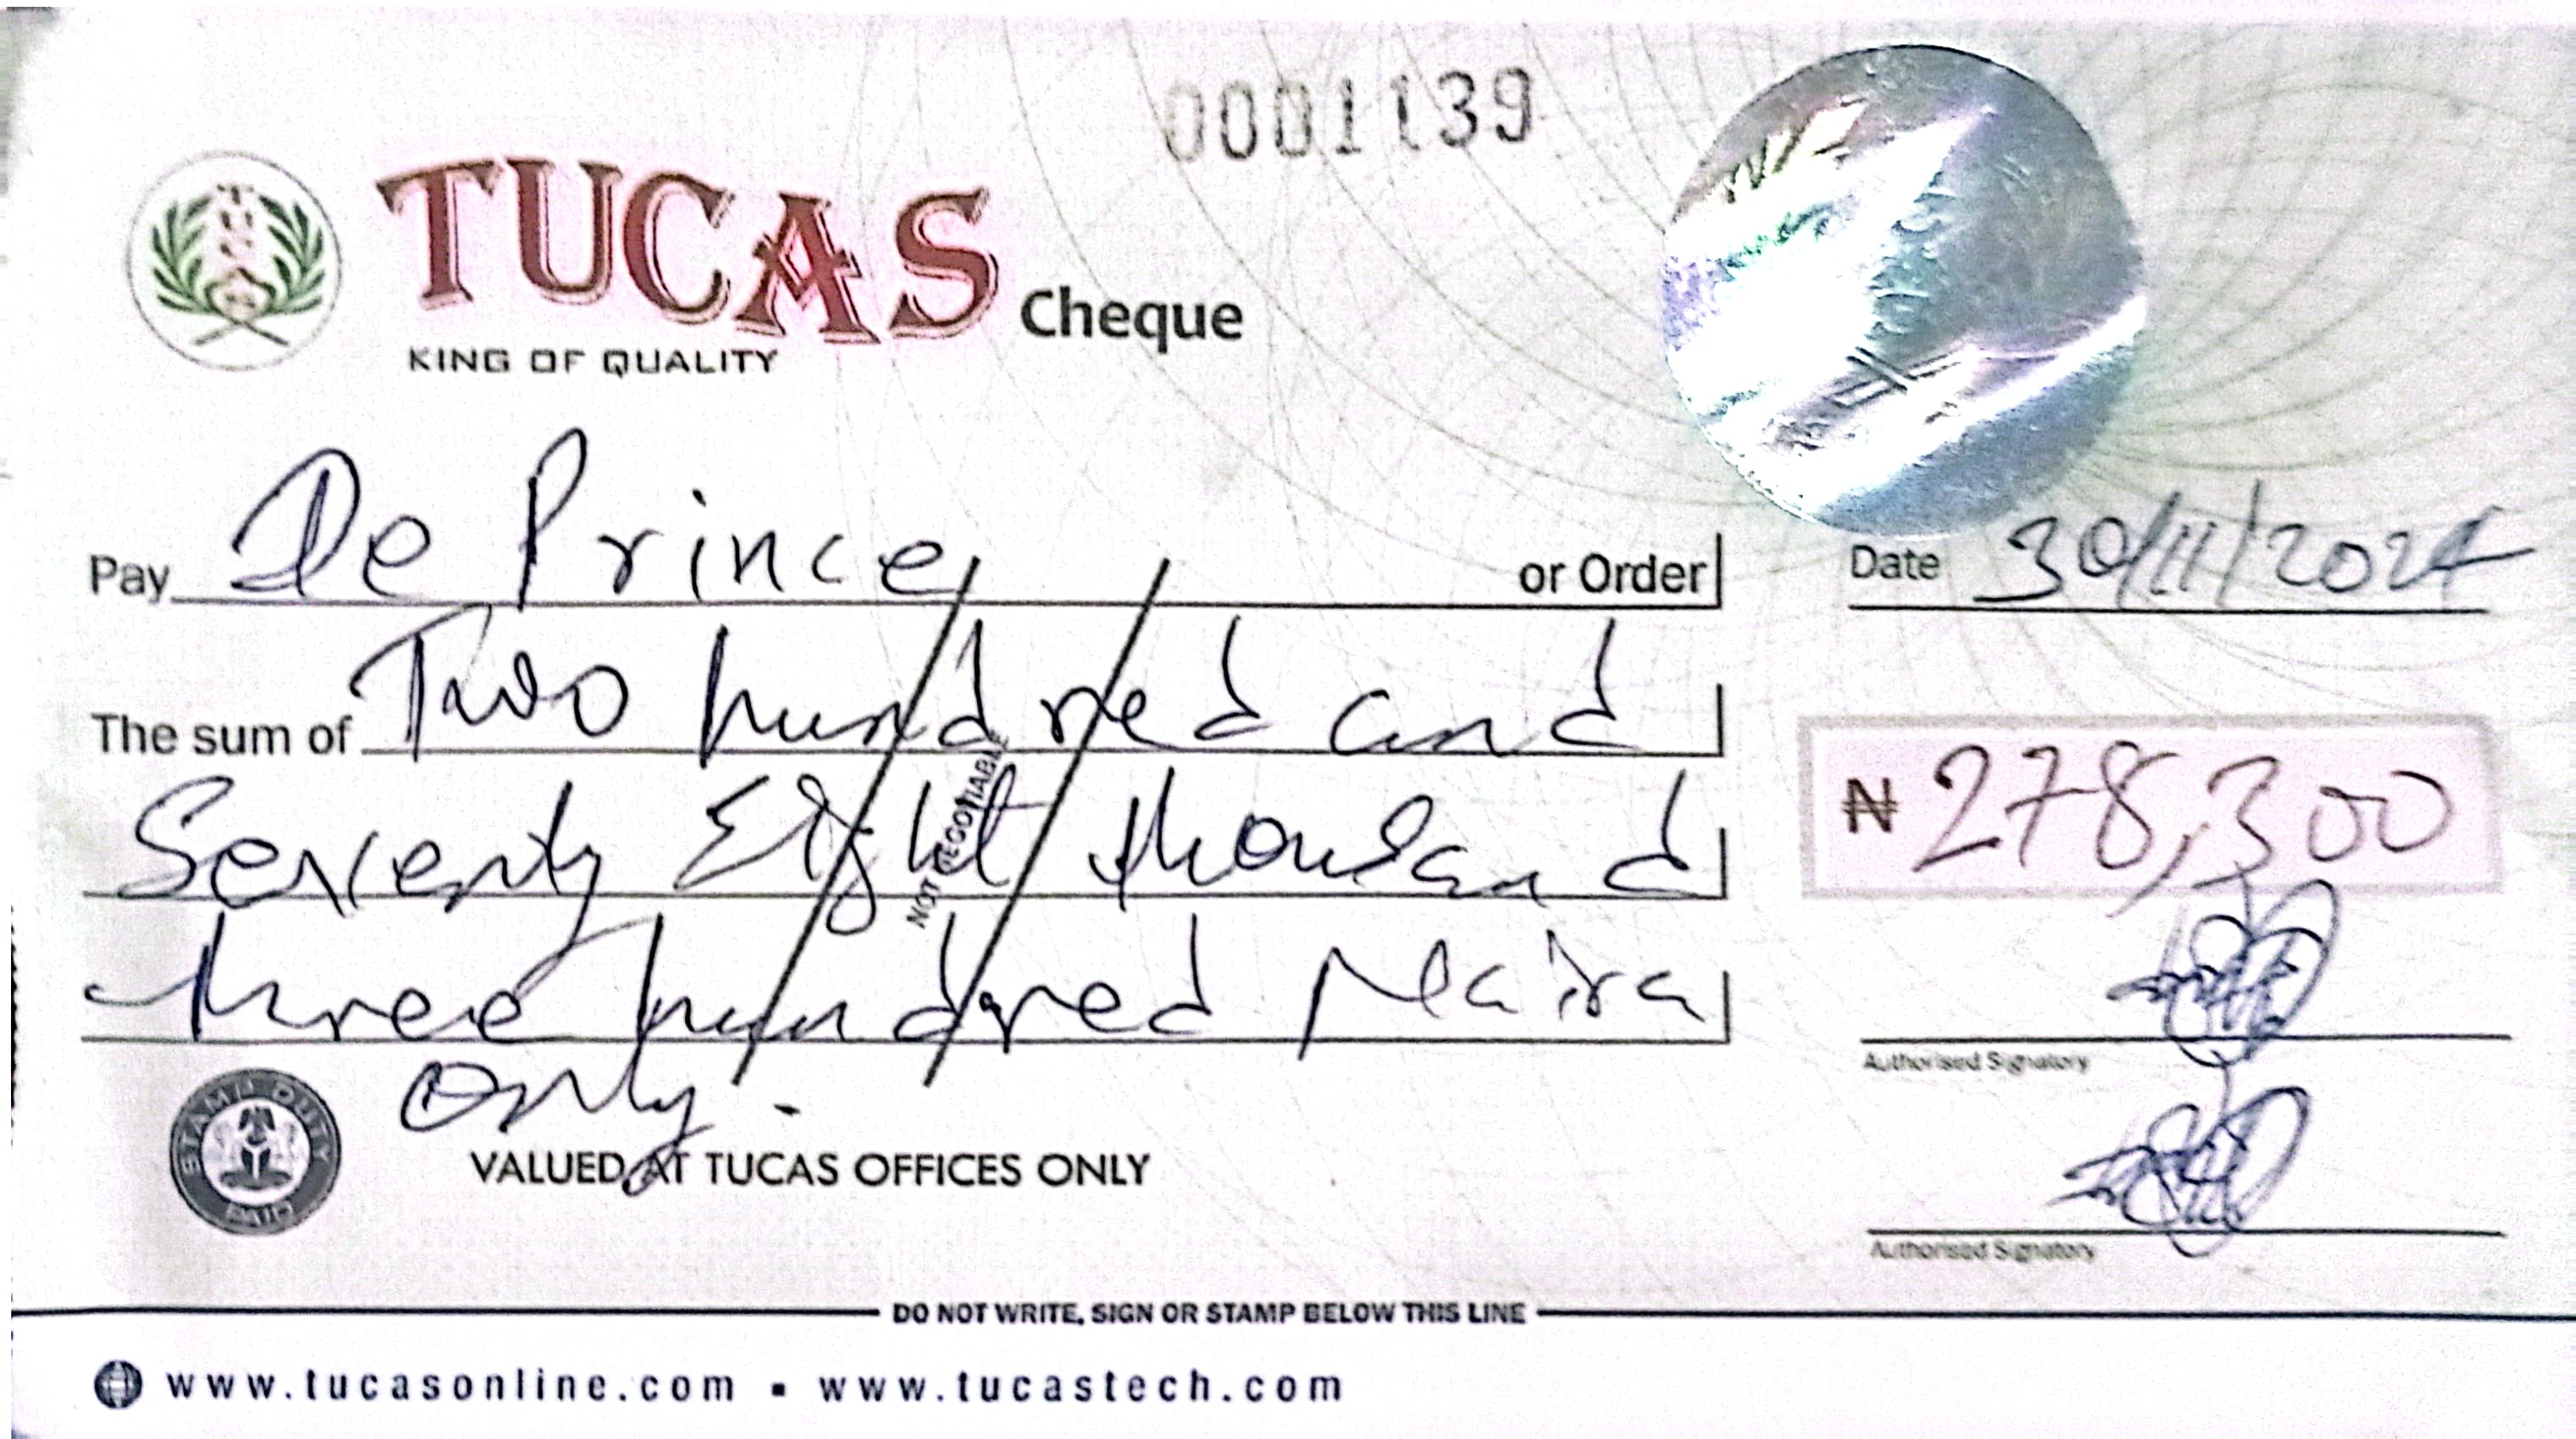 0001139
TUCAS Cheque
KING OF QUALITY
Pay De Prince or Order
Date 30/11/2024
The sum of Two hundred and
Seventy Eight thousand
₦ 278,300
three hundred Naira
only.
NOT NEGOTIABLE
Authorised Signatory
STAMP DUTY
PAID
VALUED AT TUCAS OFFICES ONLY
Authorised Signatory
DO NOT WRITE, SIGN OR STAMP BELOW THIS LINE
www.tucasonline.com ▪ www.tucastech.com